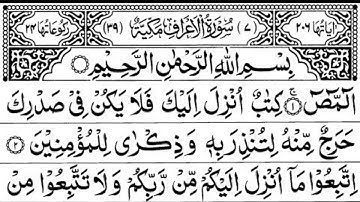 اٰیَاتُهَا ۲۰۶ (۷) سُوْرَةُ الْاَعْرَافِ مَكِّیَّةٌ (۳۹) رُكُوْعَاتُهَا ۲۴
بِسْمِ اللّٰهِ الرَّحْمٰنِ الرَّحِیْمِ
الٓمّٓصٓ ۚ﴿۱﴾ كِتٰبٌ اُنْزِلَ اِلَیْكَ فَلَا یَكُنْ فِیْ صَدْرِكَ
حَرَجٌ مِّنْهُ لِتُنْذِرَ بِهٖ وَ ذِكْرٰی لِلْمُؤْمِنِیْنَ ﴿۲﴾
اِتَّبِعُوْا مَاۤ اُنْزِلَ اِلَیْكُمْ مِّنْ رَّبِّكُمْ وَلَا تَتَّبِعُوْا مِنْ